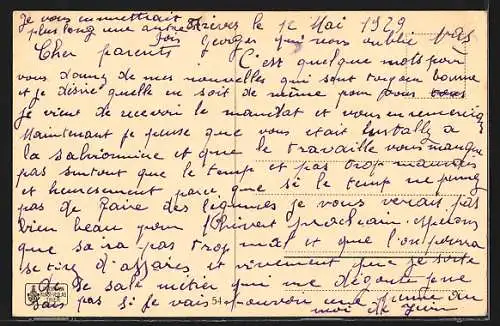 Je vous en mettrait
plus long une autre fois
Trèves le 1e Mai 1929
Georges qui vous oublie pas
Cher parents
C'est quelque mots pour
vous donnez de mes nouvelles qui sont toujour bonne
et je désire quelle en soit de même pour vous
je vient de recevoir le mandat et vous en remercie
Maintenant je pense que vous etait installé a
la et que le travaille vous manque
pas surtout que le temps et pas trop mauvais
et heureusement parce que si le temp ne
pas de faire des légumes je vous verait pas
bien beau pour l'hivert prochain espérons
que sa ira pas trop mal et que l'on pourra
se tirez d'affaires et vivement que je sorte
de se sale metier qui me dégoute je
sait pas si je vais pouvoir une au
moi de Juin
54